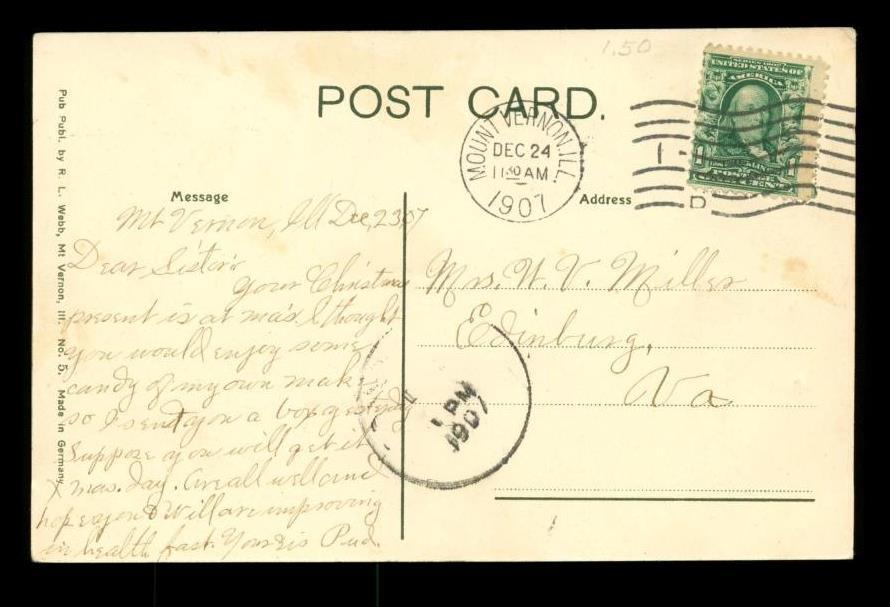 1.50
POST CARD.
SERIES 1902
UNITED STATES OF
AMERICA
1 1
POSTAGE
ONE CENT
MOUNT VERNON, ILL.
DEC 24
11 30 AM
1907
1 -
D
Message
Address
Mt Vernon, Ill Dec, 23, 07
Dear Sister:
your Christmas
present is at ma's. I thought
you would enjoy some
candy of my own make
so I sent you a box yestrday
Suppose you will get it
Xmas. day. are all well and
hope you & Will are improving
in health fast. Your Sis Pud.
Mrs. W. V. Miller
Edinburg,
Va
1 PM
1907
Pub Publ. by R. L. Webb, Mt Vernon, Ill. No. 5. Made in Germany.